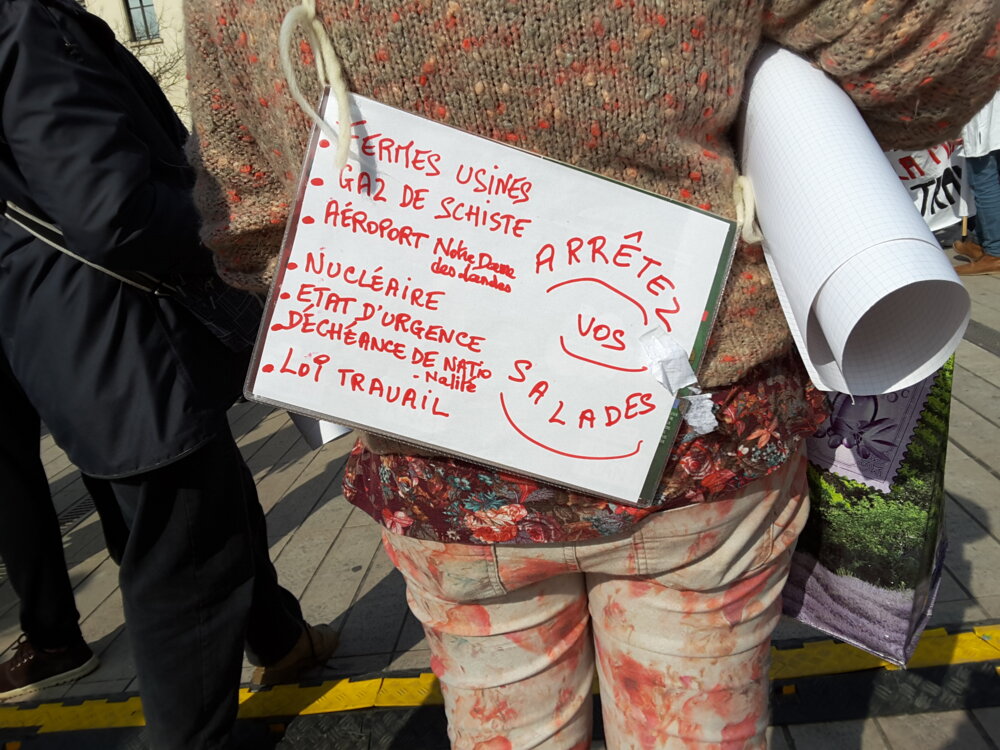 • FERMES USINES
• GAZ DE SCHISTE
• AÉROPORT Notre Dame
des Landes
• NUCLÉAIRE
• ETAT D'URGENCE
• DÉCHÉANCE DE NATIO
- Nalité
• LOÏ TRAVAIL
ARRÊTEZ
VOS
SALADES